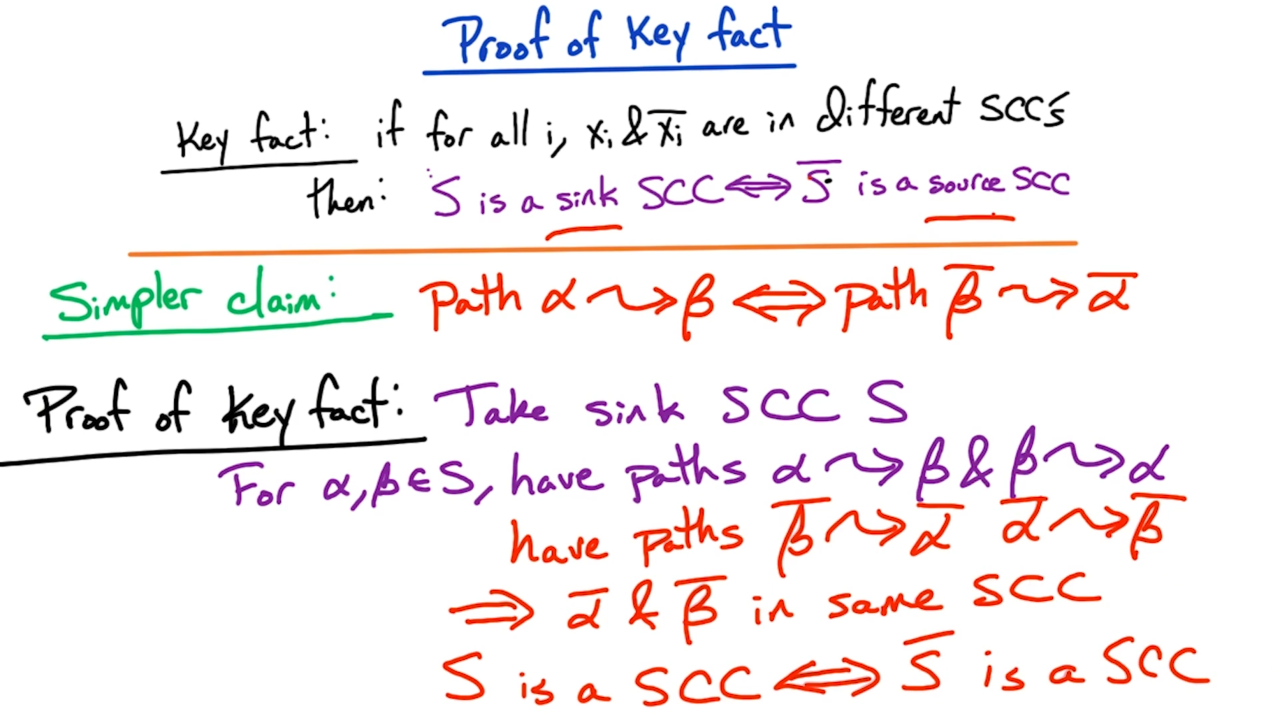 Proof of Key fact
Key fact: if for all i, xᵢ & x̅ᵢ are in different SCC's
then: S is a sink SCC ⟺ S̅ is a source SCC
Simpler claim: Path α ⤳ β ⟺ path β̅ ⤳ α̅
Proof of key fact: Take sink SCC S
For α, β ∈ S, have paths α ⤳ β & β ⤳ α
have paths β̅ ⤳ α̅ α̅ ⤳ β̅
⟹ α̅ & β̅ in same SCC
S is a SCC ⟺ S̅ is a SCC